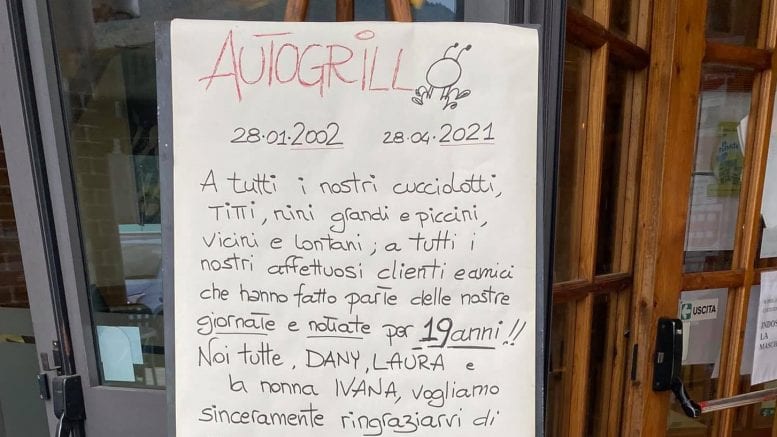 AUTOGRILL
28·01·2002 28·04·2021
A tutti i nostri cucciolotti,
TITTI, nini grandi e piccini,
vicini e lontani; a tutti i
nostri affettuosi clienti e amici
che hanno fatto parte delle nostre
giornate e nottate per 19 anni!!
Noi tutte, DANY, LAURA e
la nonna IVANA, vogliamo
sinceramente ringraziarvi di
USCITA
INDOS
LA
MASCH